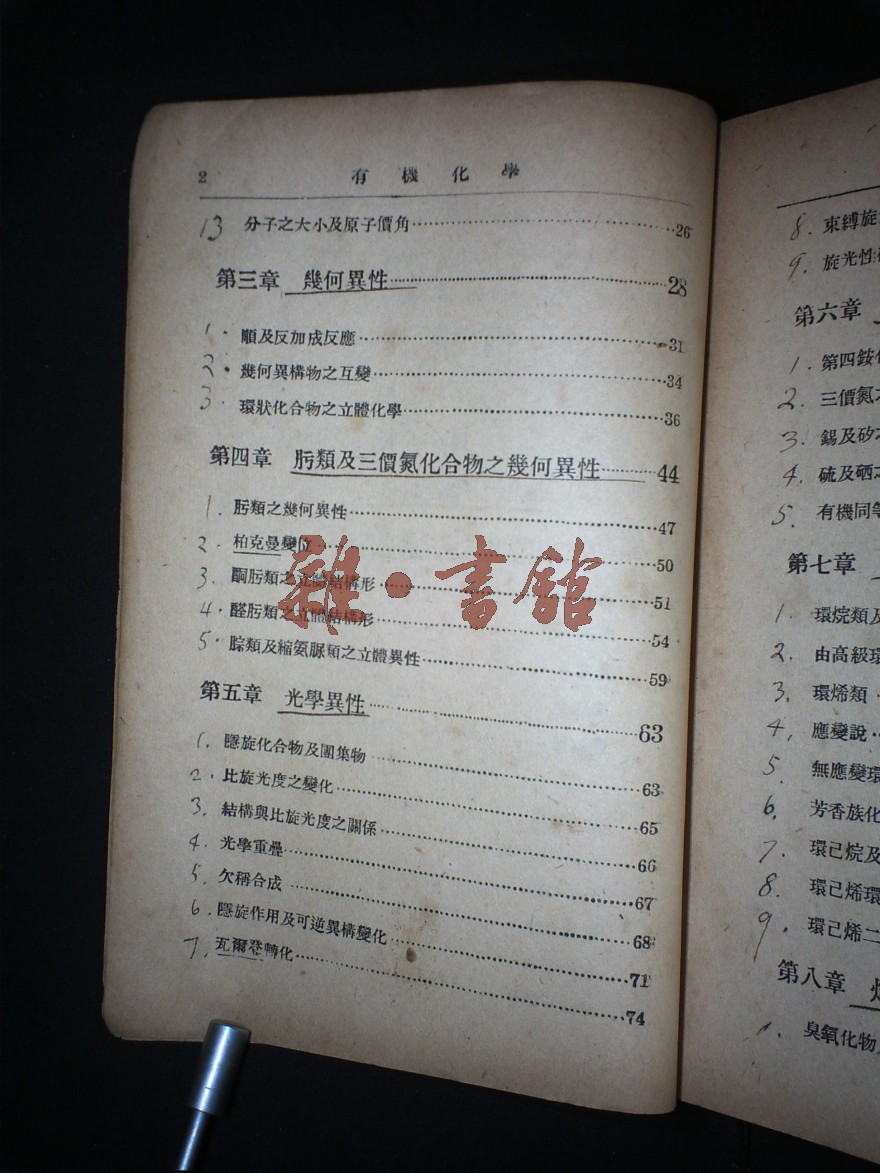 2 有機化學
13 分子之大小及原子價角……26
第三章 幾何異性……28
1. 順及反加成反應……31
2. 幾何異構物之互變……34
3. 環狀化合物之立體化學……36
第四章 肟類及三價氮化合物之幾何異性……44
1. 肟類之幾何異性……47
2. 柏克曼變位……50
3. 酮肟類之立體結構形……51
4. 醛肟類之立體結構形……54
5. 腙類及縮氨脲類之立體異性……59
雜·書舘
第五章 光學異性……63
1. 隱旋化合物及團集物……63
2. 比旋光度之變化……65
3. 結構與比旋光度之關係……66
4. 光學重疊……67
5. 欠稱合成……68
6. 隱旋作用及可逆異構變化……71
7. 瓦爾登轉化……74
8. 束縛旋
9. 旋光性
第六章
1. 第四銨
2. 三價氮
3. 錫及矽
4. 硫及硒之
5. 有機同等
第七章
1. 環烷類及
2. 由高級環
3. 環烯類
4. 應變說
5. 無應變環
6. 芳香族化
7. 環己烷及
8. 環己烯環
9. 環己烯二
第八章
1. 臭氧化物